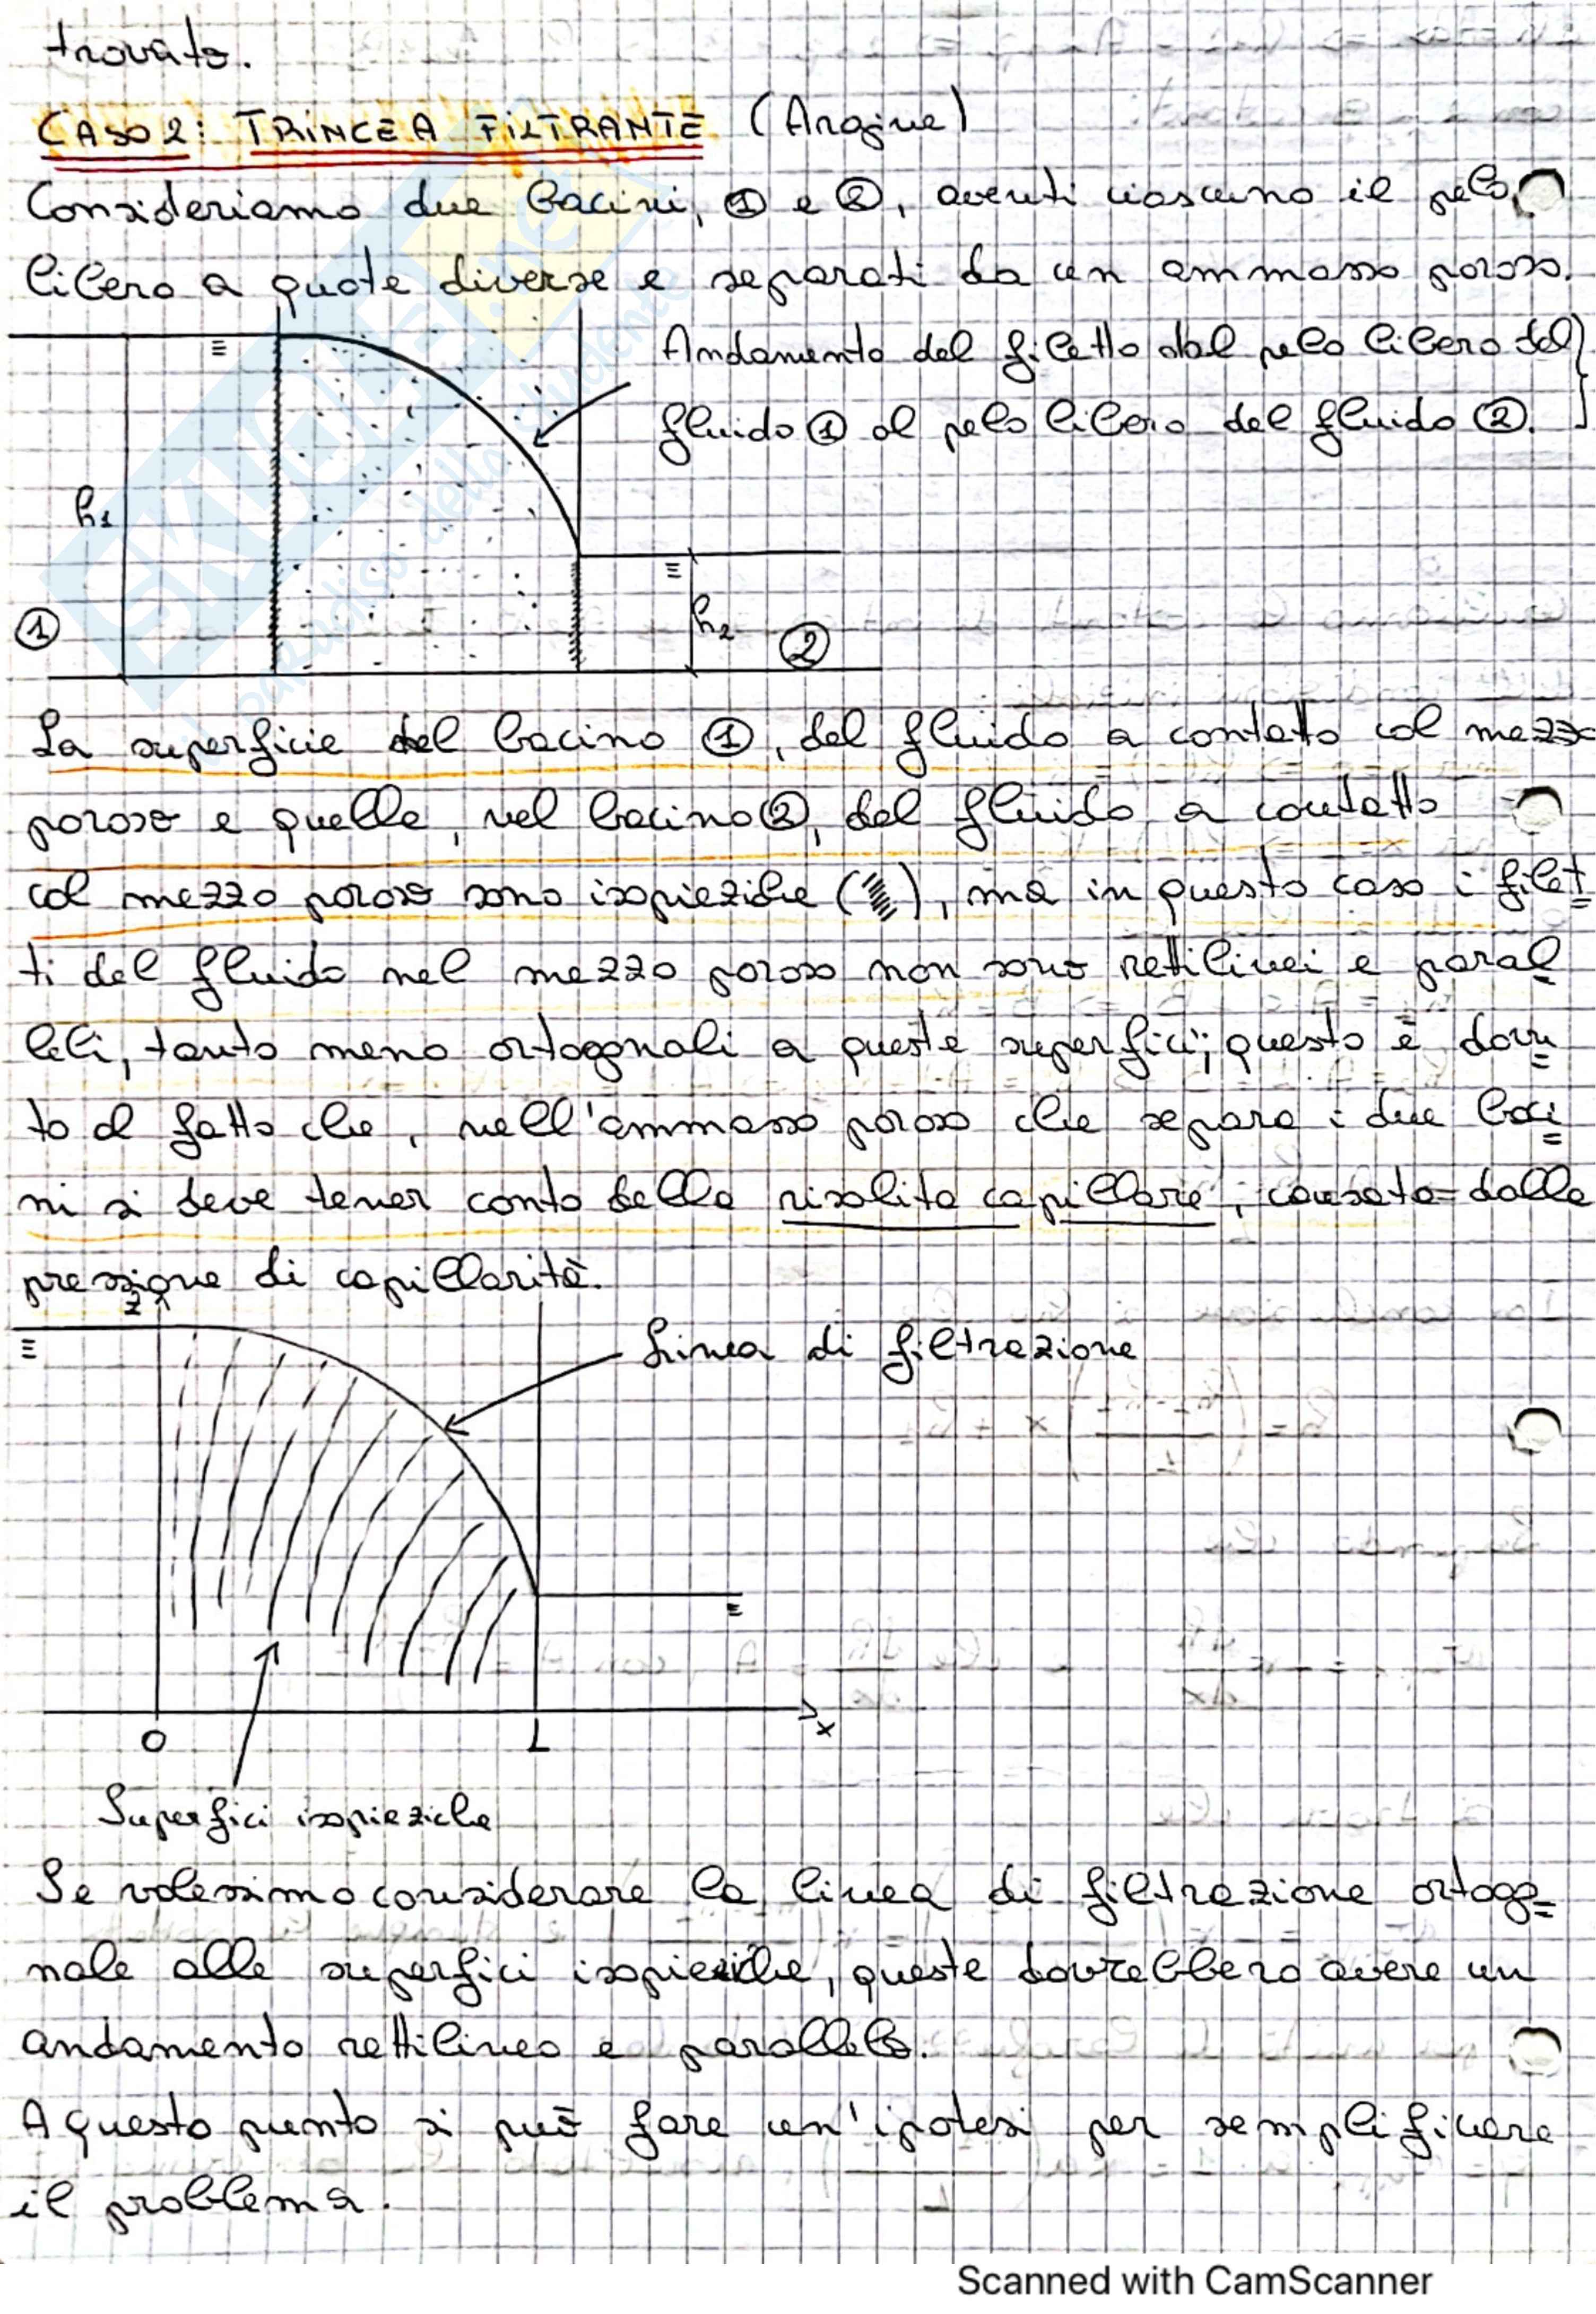 trovato.
CASO 2: TRINCEA FILTRANTE (Argine)
Consideriamo due bacini, ① e ②, aventi ciascuno il pelo
libero a quote diverse e separati da un ammasso poroso.
Andamento del filetto dal pelo libero del
fluido ① al pelo libero del fluido ②.
h1
①
h2
②
La superficie del bacino ①, del fluido a contatto col mezzo
poroso e quella, nel bacino ②, del fluido a contatto
col mezzo poroso sono isopieziche ( ), ma in questo caso i filet
ti del fluido nel mezzo poroso non sono rettilinei e paral
leli, tanto meno ortogonali a queste superfici; questo è dovu
to al fatto che, nell'ammasso poroso che separa i due baci
ni si deve tener conto della risalita capillare, causata dalla
pressione di capillarità.
z
Linea di filtrazione
O
L
x
Superfici isopieziche
Se volessimo considerare la linea di filtrazione ortogo
nale alle superfici isopieziche, queste dovrebbero avere un
andamento rettilineo e parallelo.
A questo punto si può fare un'ipotesi per semplificare
il problema.
Scanned with CamScanner